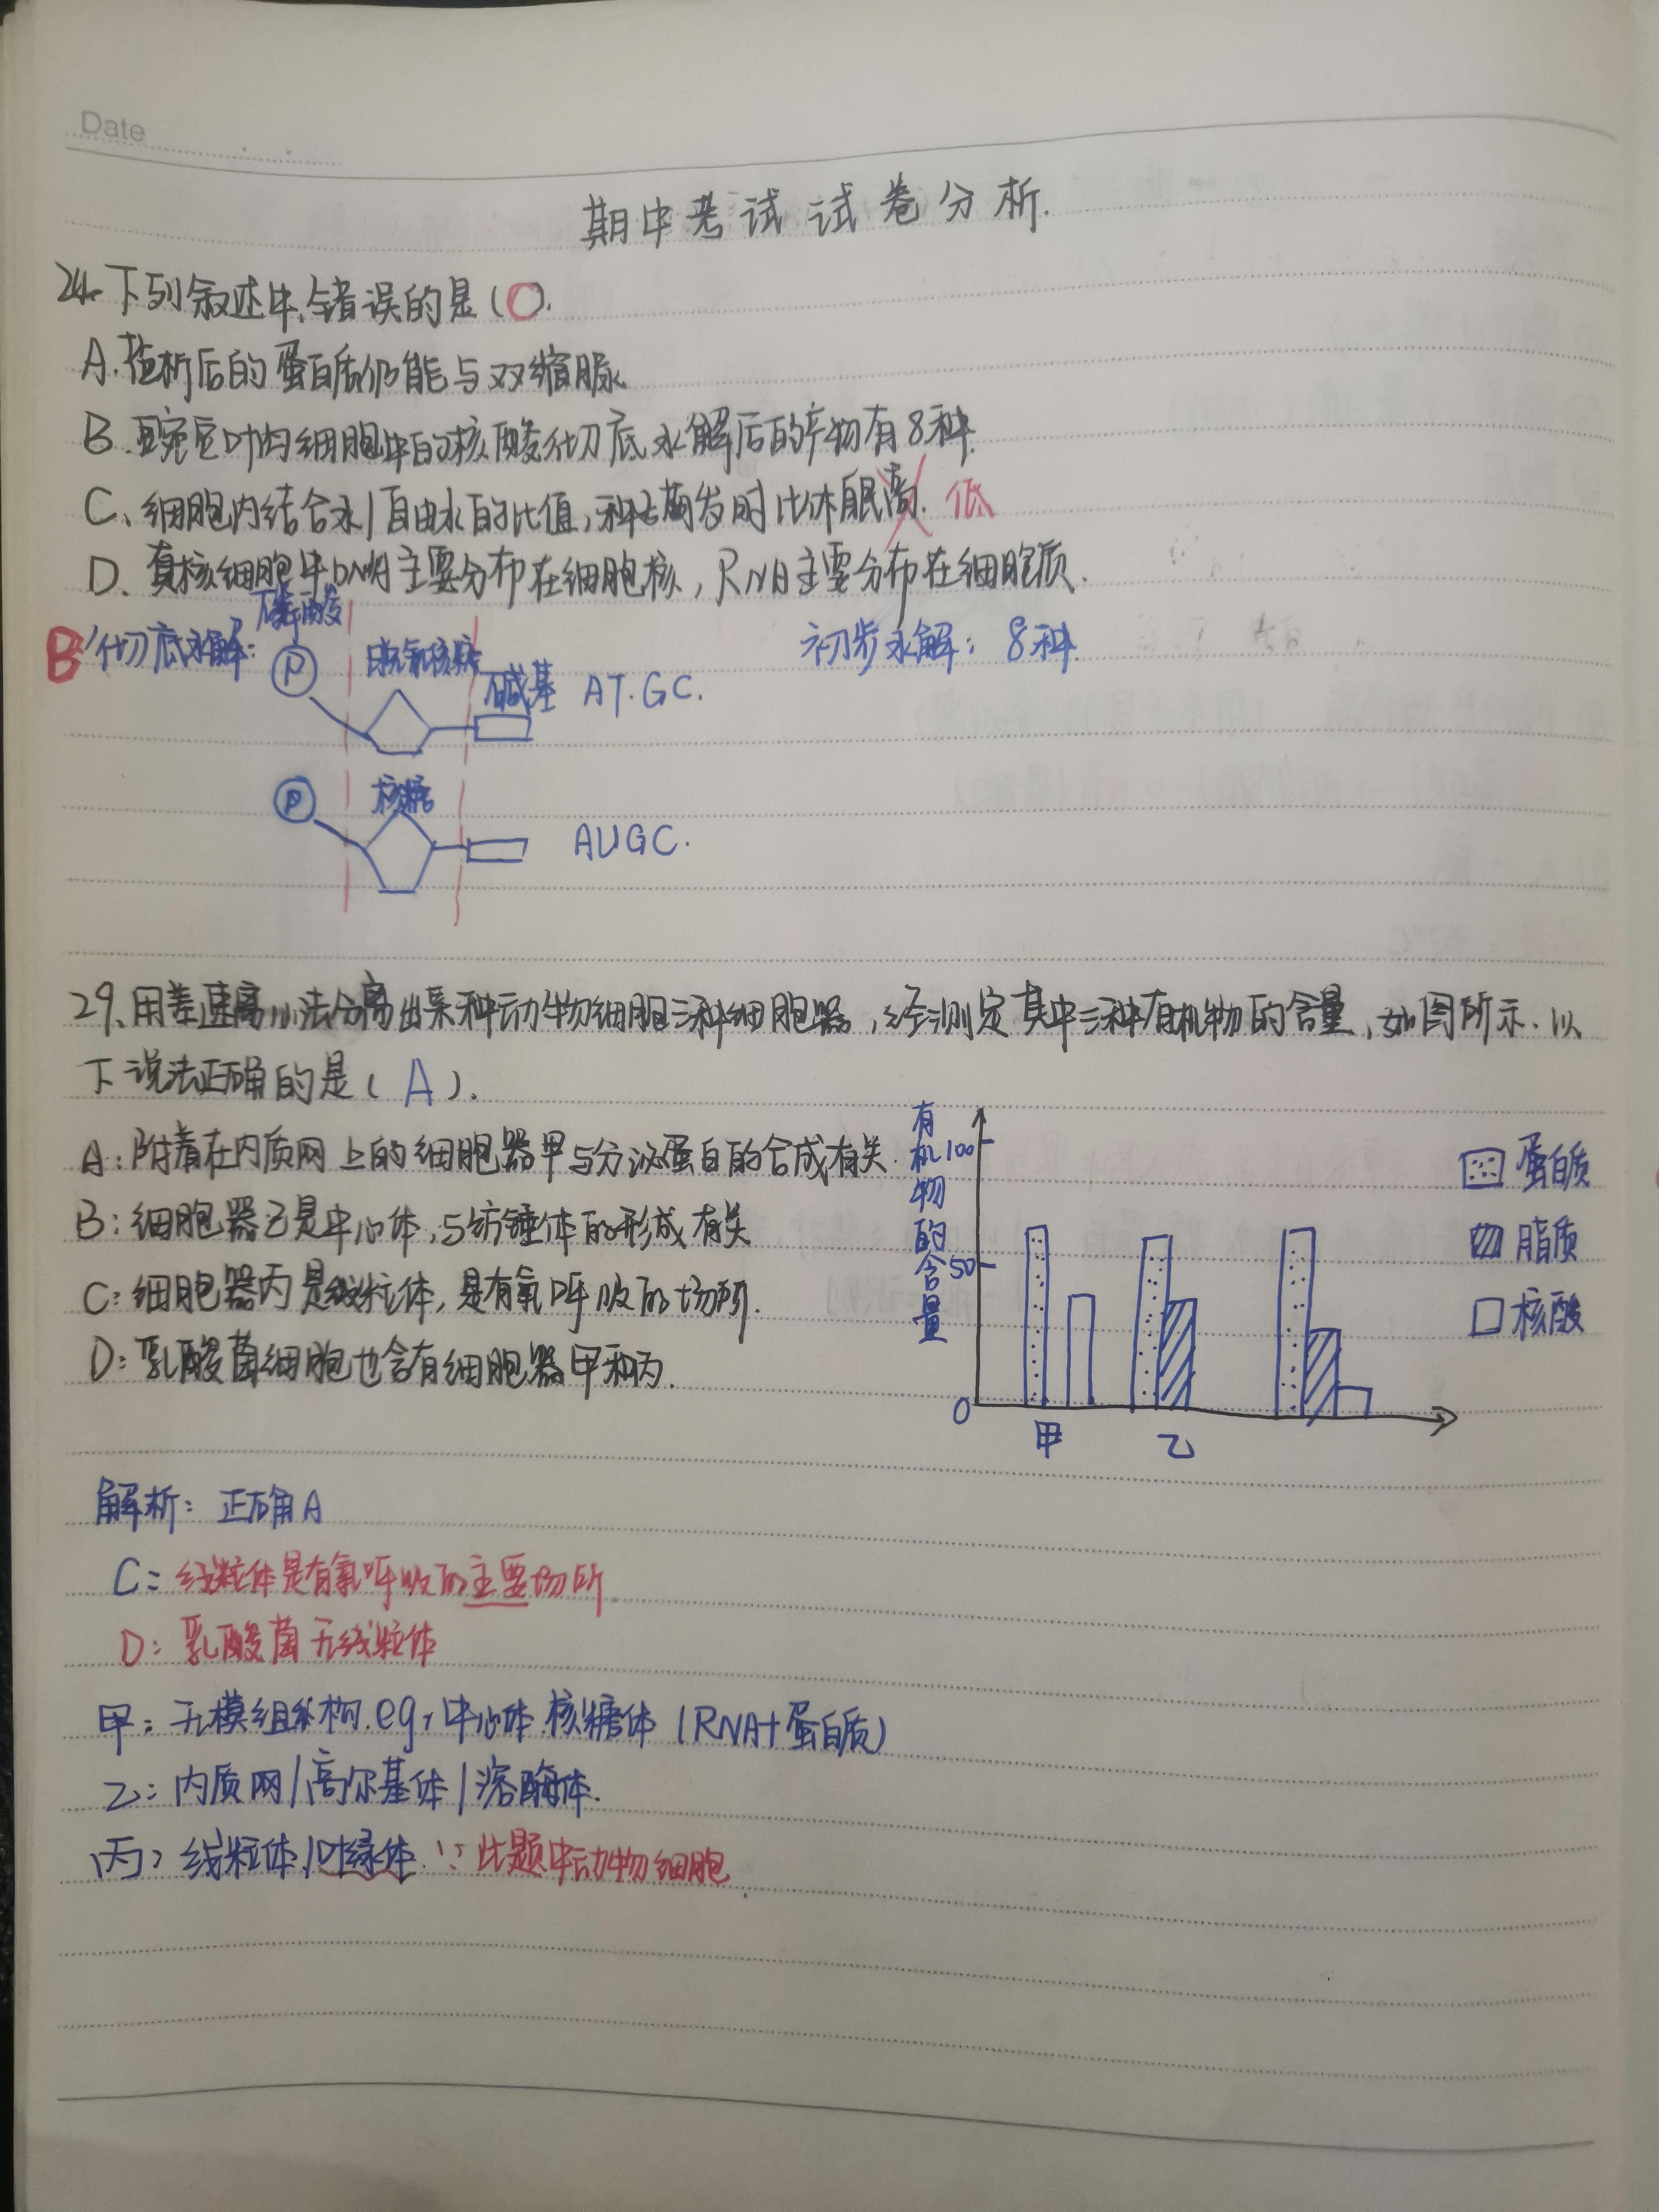 Date
期中考试试卷分析.
24. 下列叙述中,错误的是(C).
A. 盐析后的蛋白质仍能与双缩脲
B. 豌豆叶肉细胞中的核酸彻底水解后的产物有8种.
C、细胞内结合水/自由水的比值,种子萌发时比休眠高. 低
D、真核细胞中DNA主要分布在细胞核,RNA主要分布在细胞质.
B 彻底水解: 磷酸 脱氧核糖 碱基 AT.GC.
初步水解: 8种
P
P 核糖 AUGC.
29、用差速离心法分离出某种动物细胞三种细胞器,经测定其中三种有机物的含量,如图所示.以
下说法正确的是( A ).
A: 附着在内质网上的细胞器甲与分泌蛋白的合成有关.
B: 细胞器乙是中心体,与纺锤体的形成有关
C: 细胞器丙是线粒体,是有氧呼吸的场所.
D: 乳酸菌细胞也含有细胞器甲和丙.
有机物的含量
100
50
0
甲 乙
蛋白质
脂质
核酸
解析: 正确A
C: 线粒体是有氧呼吸的主要场所.
D: 乳酸菌无线粒体
甲: 无模组织构.eg,中心体.核糖体(RNA+蛋白质)
乙: 内质网/高尔基体/溶酶体.
丙: 线粒体/叶绿体.∵此题中动物细胞.